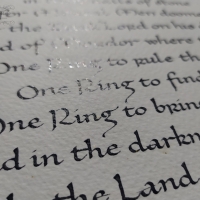 the Lord on his
d of Mordor where
One Ring to rule th
One Ring to find
One Ring to bring
d in the darkn
the Land